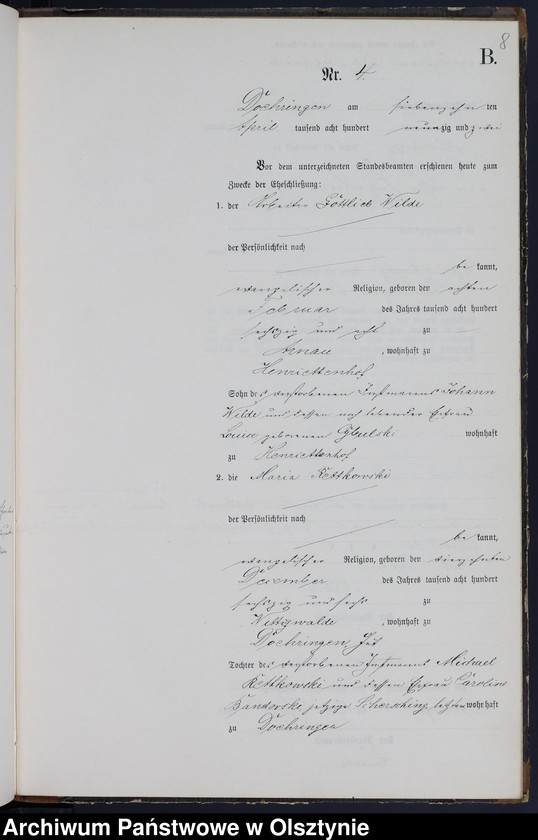 8
B.
Nr. 4.
Doehringen am siebenzehn ten
April tausend acht hundert neunzig und zwei
Vor dem unterzeichneten Standesbeamten erschienen heute zum
Zwecke der Eheschließung:
1. der Arbeiter Gottlieb Wilde
der Persönlichkeit nach
be kannt,
evangelischer Religion, geboren den achten
Februar des Jahres tausend acht hundert
sechszig und acht zu
Arnau , wohnhaft zu
Henriettenhof
Sohn des verstorbenen Instmanns Johann
Wilde und dessen noch lebender Ehefrau
Louise geborenen wohnhaft
zu Henriettenhof
2. die Maria Rettkowski
der Persönlichkeit nach
be kannt,
evangelischer Religion, geboren den vierzehnten
Dezember des Jahres tausend acht hundert
sechszig und sechs zu
Wittigwalde , wohnhaft zu
Doehringen, Gut
Tochter des verstorbenen Instmanns Michael
Rettkowski und dessen Ehefrau Caroline
jetzige wohnhaft
zu Doehringen
Archiwum Państwowe w Olsztynie